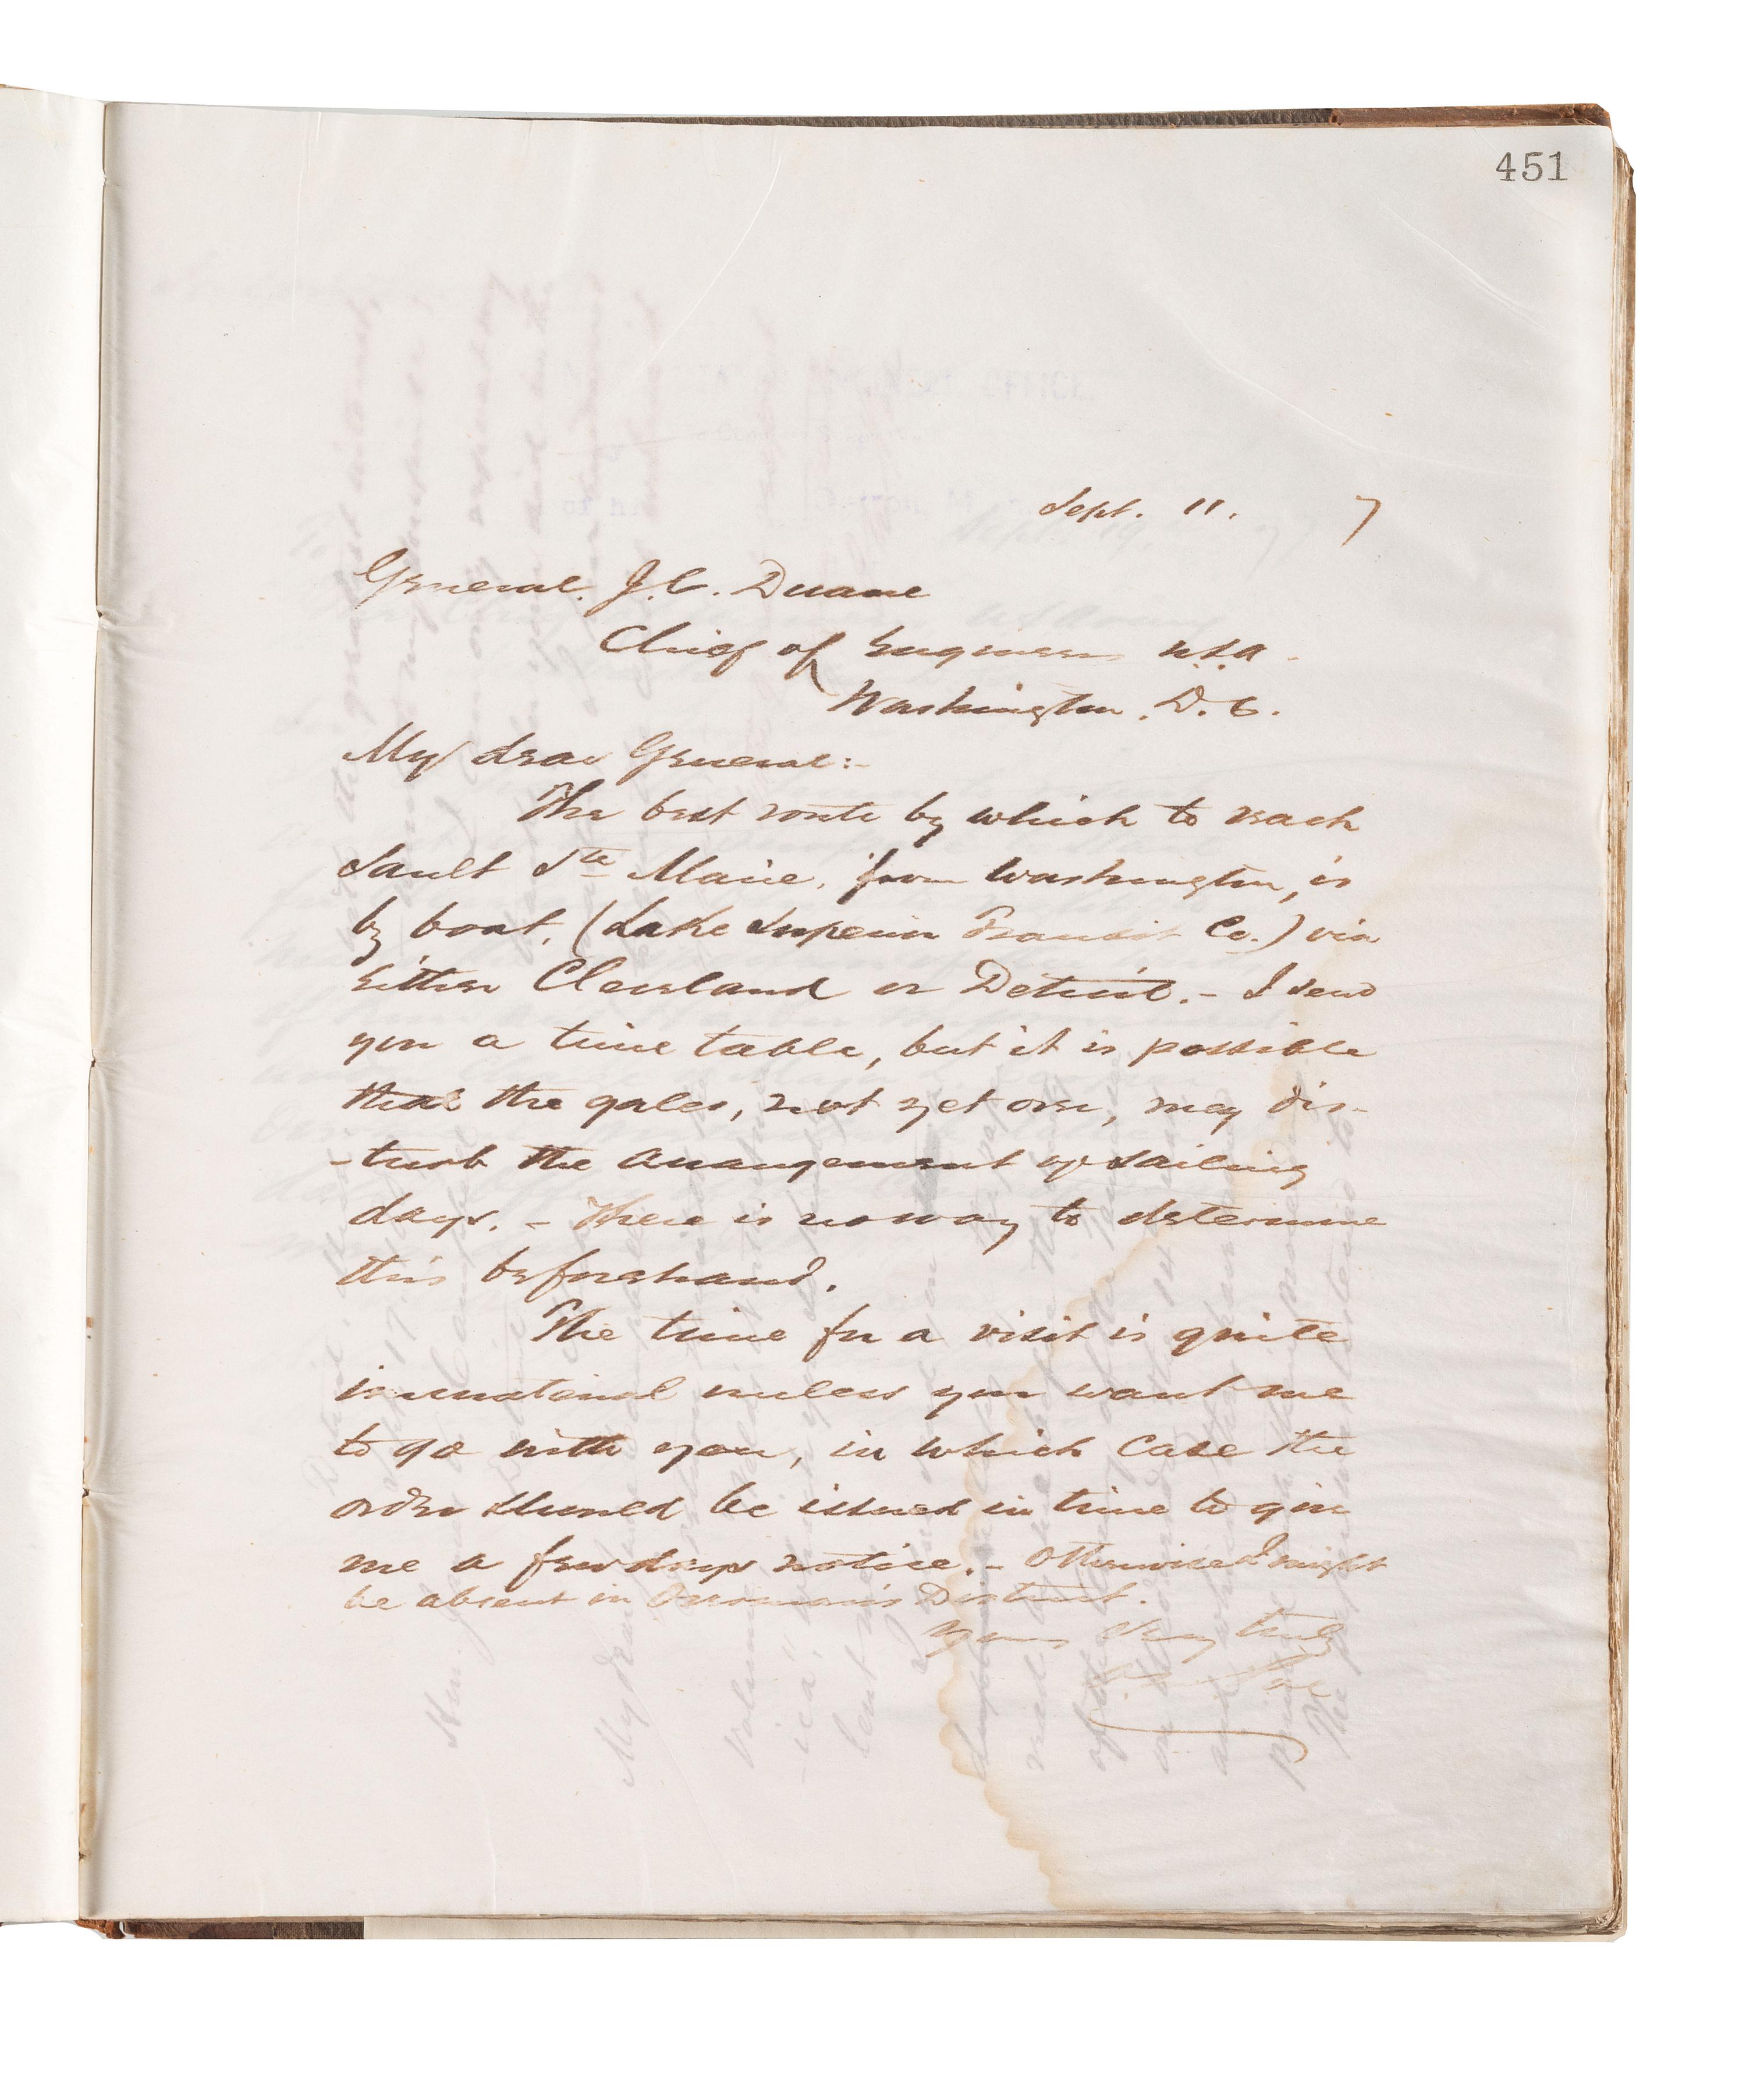 451
Sept. 11. 7
General. J. C. Duane
Chief of Engineers U.S.A.
Washington. D. C.
My dear General:-
The best route by which to reach
Sault Ste Marie, from Washington, is
by boat, (Lake Superior Transit Co.) via
either Cleveland or Detroit. - I send
you a time table, but it is possible
that the gales, not yet over, may dis-
-turb the arrangement of sailing
days. - There is no way to determine
this beforehand.
The time for a visit is quite
immaterial unless you want me
to go with you, in which case the
order should be issued in time to give
me a few days notice. - Otherwise I might
be absent in District.
Yours very truly
O. M. Poe